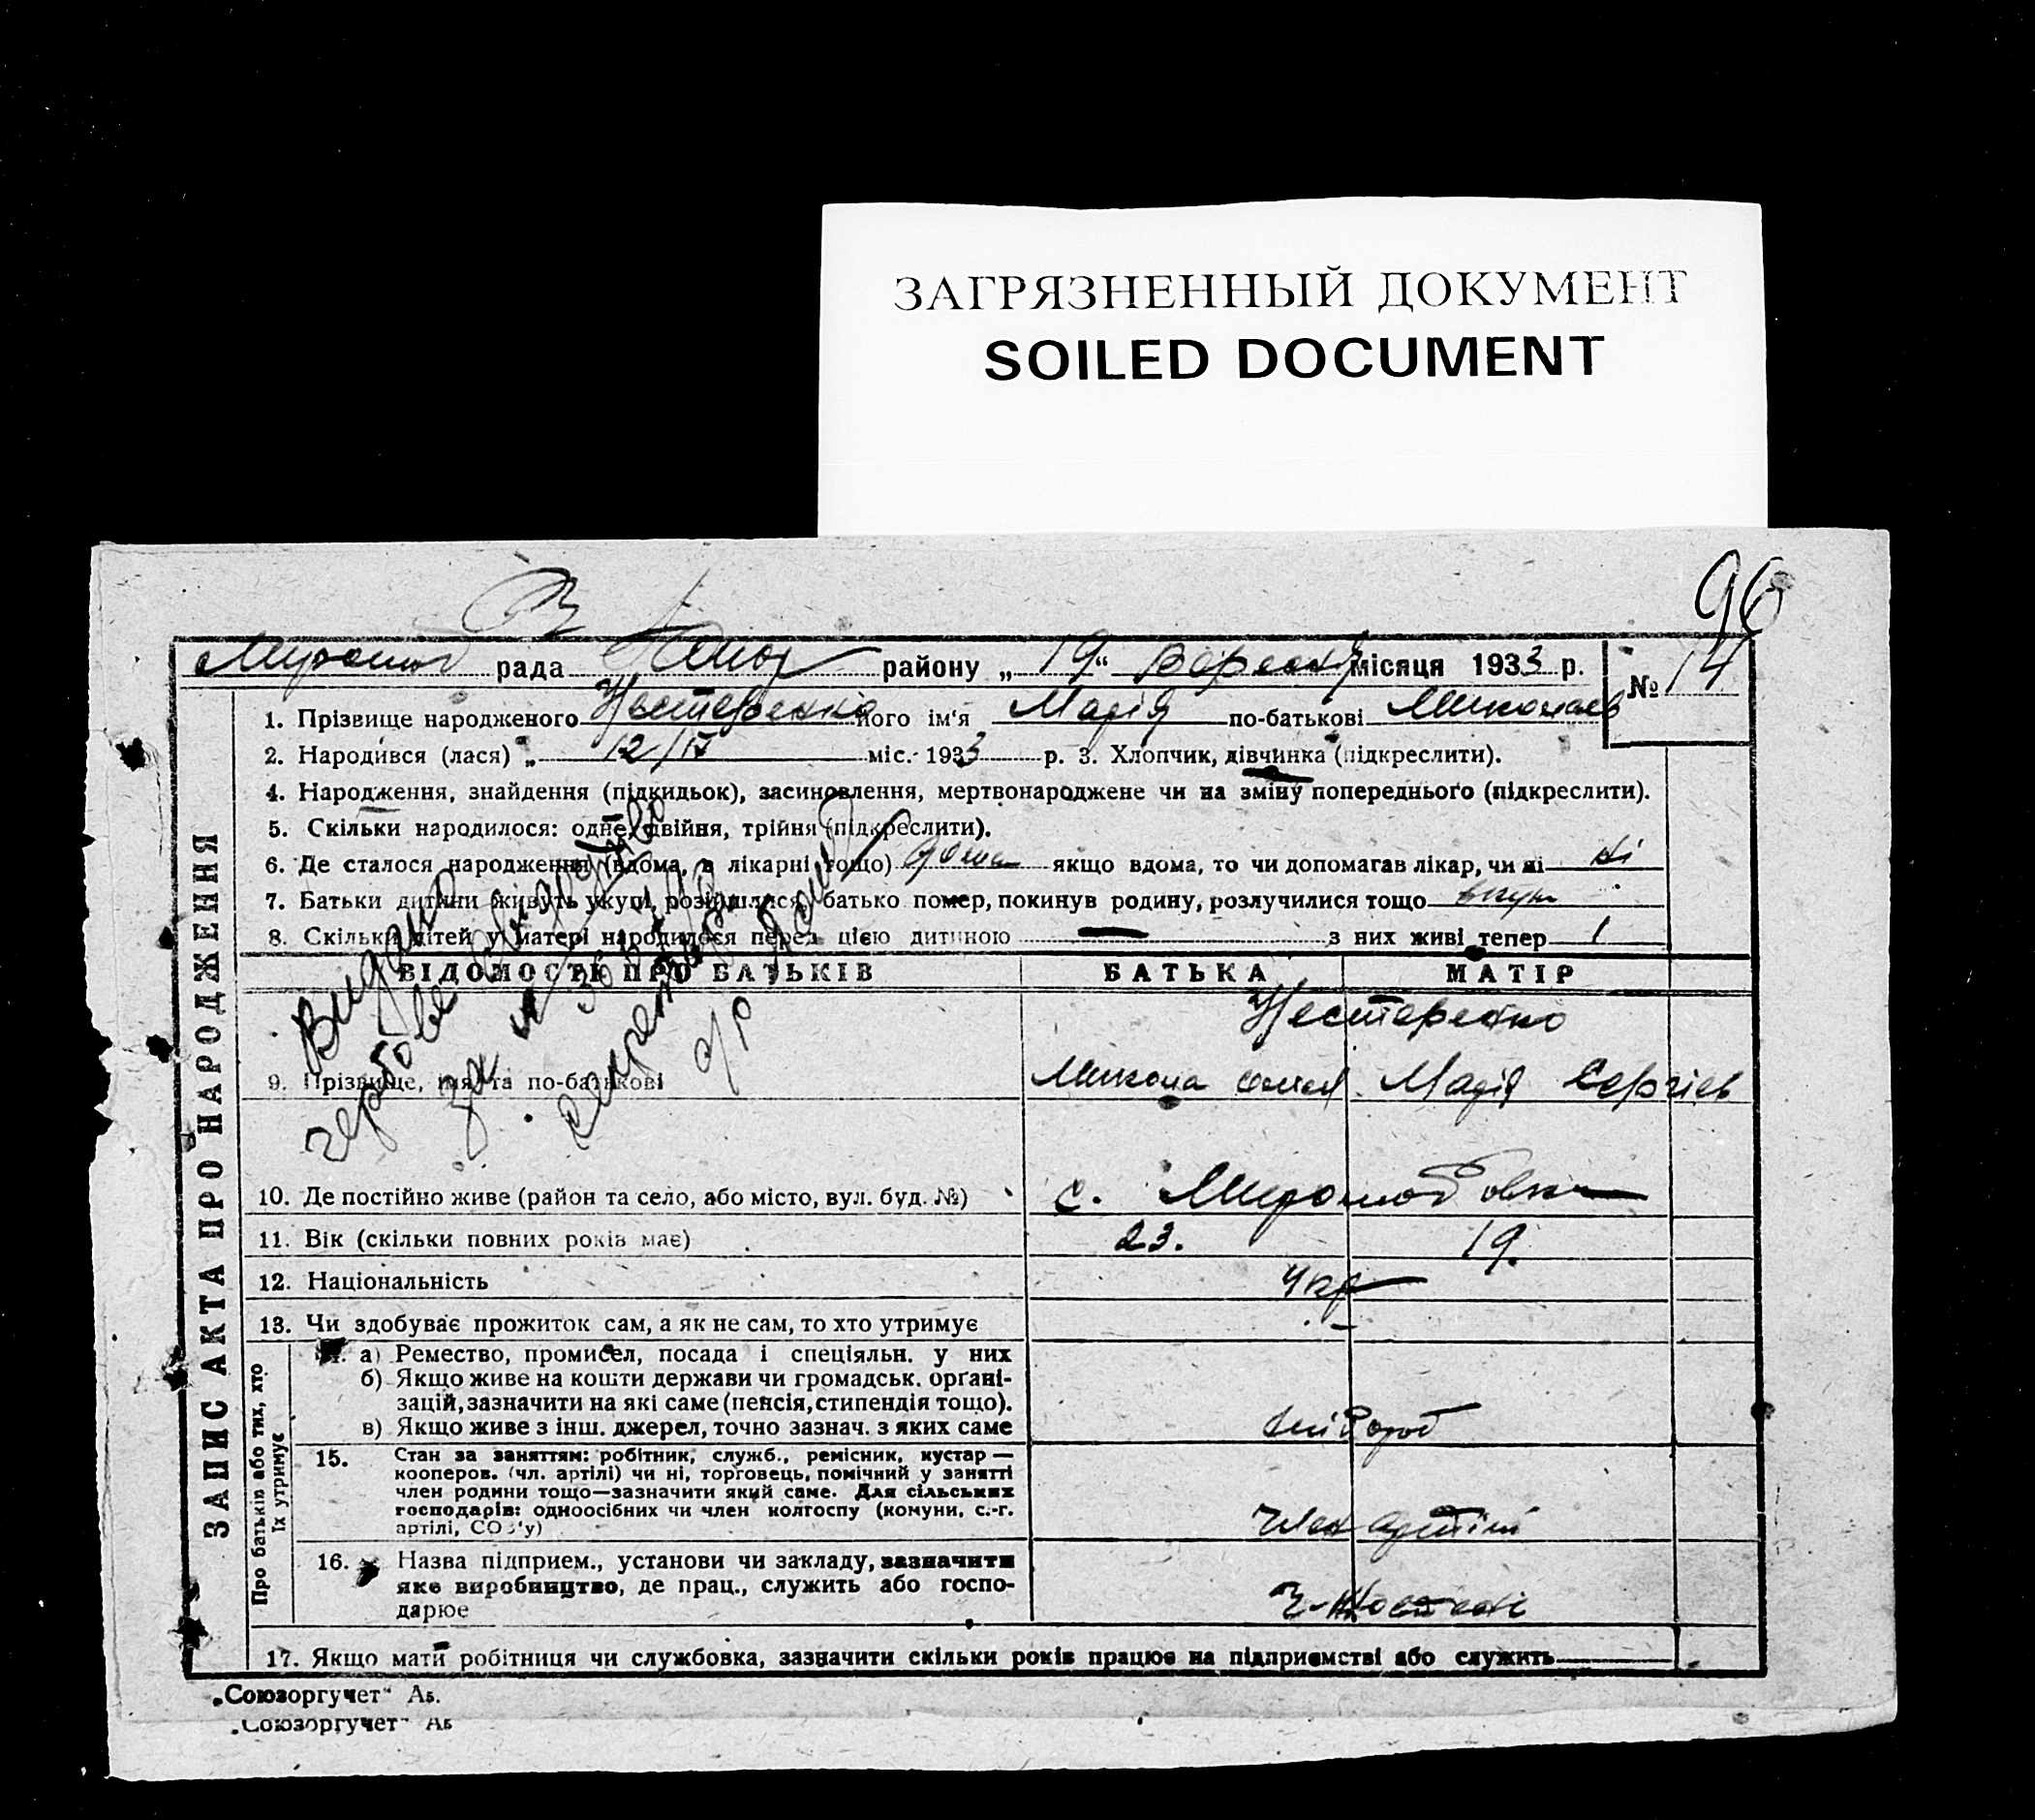 ЗАГРЯЗНЕННЫЙ ДОКУМЕНТ
SOILED DOCUMENT
96
рада району „19“ Вересня місяця 1933 р. № 14
1. Прізвище народженого Нестеренко його ім'я Марія по-батькові Миколаев
2. Народився (лася) „ 12/IV міс. 1933 р. 3. Хлопчик, дівчинка (підкреслити).
4. Народження, знайдення (підкидьок), засиновлення, мертвонароджене чи на зміну попереднього (підкреслити).
5. Скільки народилося: одне, двійня, трійня (підкреслити).
6. Де сталося народження (вдома, в лікарні тощо) дома якщо вдома, то чи допомагав лікар, чи ні ні
7. Батьки дитини живуть укупі, розійшлися, батько помер, покинув родину, розлучилися тощо вкупі
8. Скільки дітей у матері народилося перед цією дитиною — з них живі тепер 1
ВІДОМОСТІ ПРО БАТЬКІВ БАТЬКА МАТІР
Нестеренко
9. Прізвище, имя та по-батькові Микола Марія Сергіев
10. Де постійно живе (район та село, або місто, вул. буд. №) с.
11. Вік (скільки повних років має) 23. 19.
12. Національність укр
13. Чи здобуває прожиток сам, а як не сам, то хто утримує —
а) Ремество, промисел, посада і спеціяльн. у них
б) Якщо живе на кошти держави чи громадськ. органі-
зацій, зазначити на які саме (пенсія, стипендія тощо).
в) Якщо живе з інш. джерел, точно зазнач. з яких саме
15. Стан за заняттям: робітник, служб., ремісник, кустар —
кооперов. (чл. артілі) чи ні, торговець, помічний у занятті
член родини тощо—зазначити який саме. Для сільських
господарів: одноосібних чи член колгоспу (комуни, с.-г.
артілі, СОЗ'у) Член артілі
16. Назва підприєм., установи чи закладу, зазначити
яке виробництво, де прац., служить або госпо-
дарює
17. Якщо мати робітниця чи службовка, зазначити скільки років працює на підприємстві або служить
ЗАПИС АКТА ПРО НАРОДЖЕННЯ
Про батьків або тих, хто
їх утримує
Видано
за №
„Союзоргучет“ Аб.
„Союзоргучет“ Аб